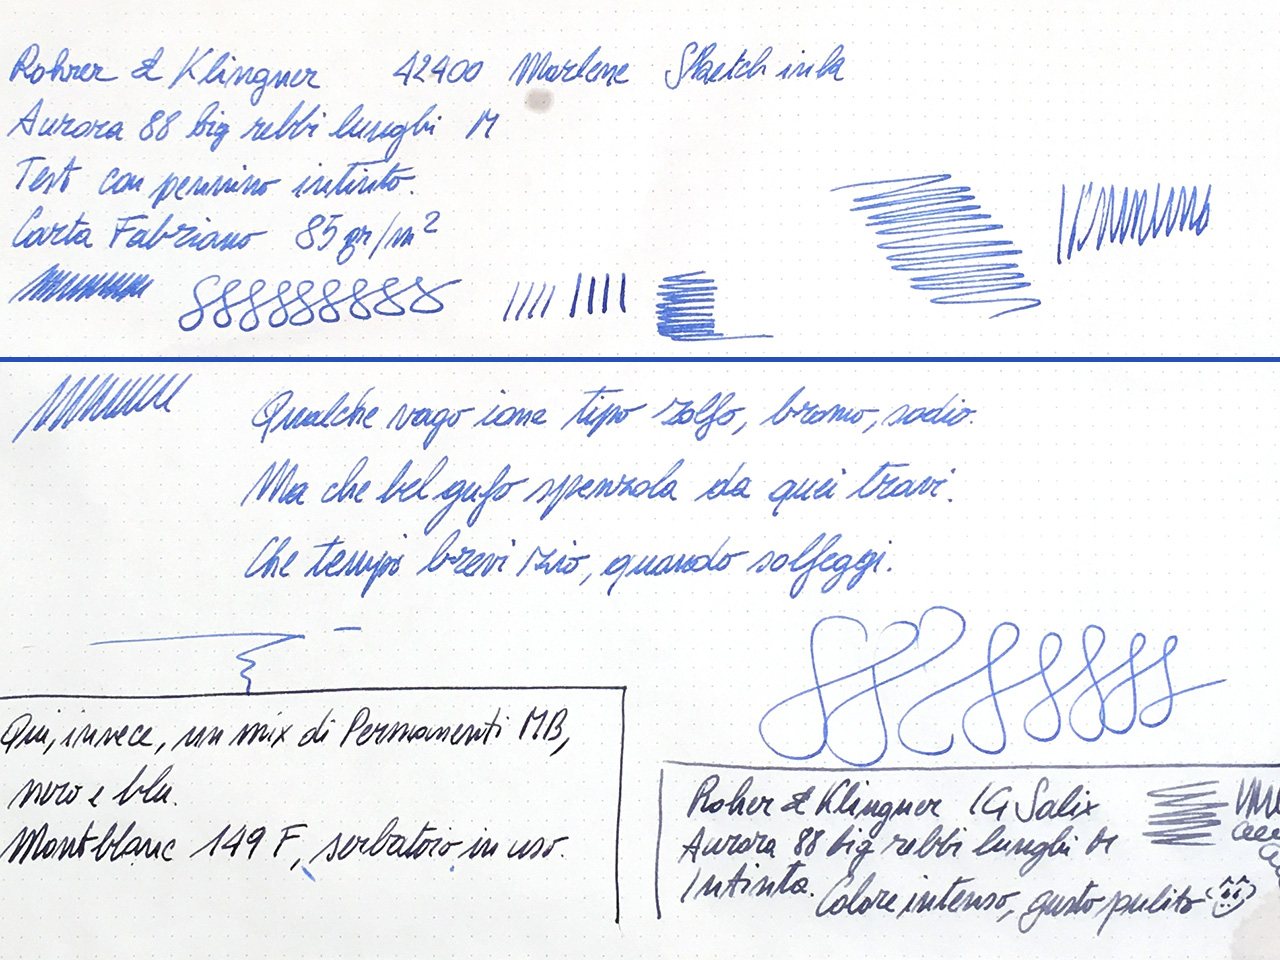 Rohrer & Klingner 42400 Marlene Sketch ink
Aurora 88 big rebbi lunghi M
Test con pennino intinto.
Carta Fabriano 85 gr/m²
Qualche vago ione tipo zolfo, bromo, sodio.
Ma che bel gufo spenzola da quei travi.
Che tempi brevi zio, quando solfeggi.
Qui, invece, un mix di Permanenti MB,
nero e blu.
Montblanc 149 F, serbatoio in uso.
Roher & Klingner IG Salix
Aurora 88 big rebbi lunghi M
Intinta. Colore intenso, gusto pulito